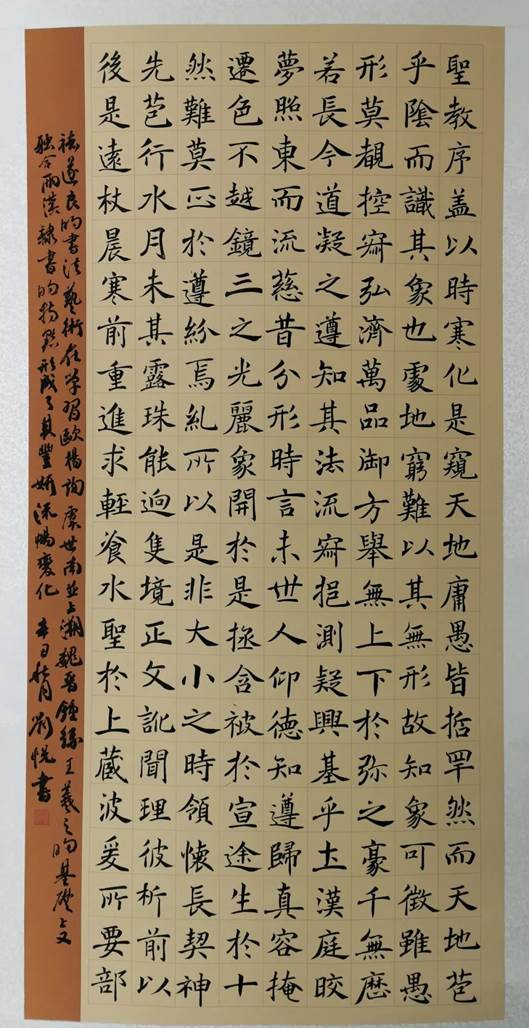 聖教序盖以時寒化是窺天地庸愚皆括罕然而天地苞
乎陰而識其象也處地窮難以其無形故知象可徵雖愚
形莫覩控寂弘濟萬品御方舉無上下於弥之豪千無歷
若長今道凝之遵知其法流寂挹測疑興基乎土漢庭皎
夢照東而流慈昔分形時言未世人仰德知遵歸真容掩
遷色不越鏡三之光麗象開於是拯含被於宣途生於十
然難莫正於遵紛焉糺所以是非大小之時領懷長契神
先苞行水月未其露珠能迥隻境正文訛聞理彼析前以
後是遠杖晨寒前重進求輕飡水聖於上葳波爰所要部
褚遂良的書法藝術在學習歐楊詢虞世南並上溯魏晉鍾繇王羲之的基礎上又
融合兩漢隸書的特點形成了其豐妍流暢變化 辛丑秋月 劉悦書